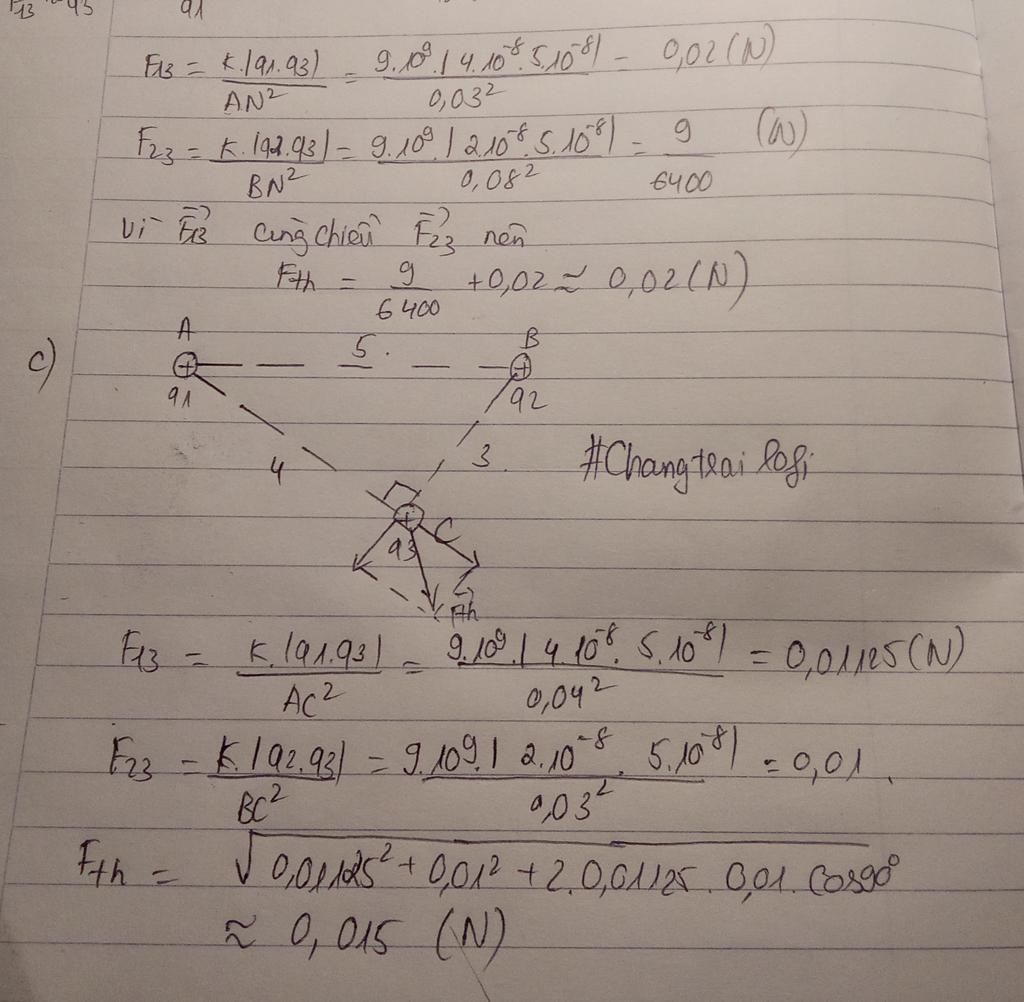 F13 = K.|q1.q3| / AN² = 9.10⁹.|4.10⁻⁸.5.10⁻⁸| / 0,03² = 0,02 (N)
F23 = K.|q2.q3| / BN² = 9.10⁹.|2.10⁻⁸.5.10⁻⁸| / 0,08² = 9 / 6400 (N)
Vì F⃗13 cùng chiều F⃗23 nên
Fth = 9 / 6400 + 0,02 ≈ 0,02 (N)
c)
A 5. B
+ +
q1 q2
4 3. #Changtrai lofi
+ C
q3
F⃗th
F13 = K.|q1.q3| / AC² = 9.10⁹.|4.10⁻⁸.5.10⁻⁸| / 0,04² = 0,01125 (N)
F23 = K.|q2.q3| / BC² = 9.10⁹.|2.10⁻⁸.5.10⁻⁸| / 0,03² = 0,01.
Fth = √0,01125² + 0,01² + 2.0,01125.0,01.cos90°
≈ 0,015 (N)